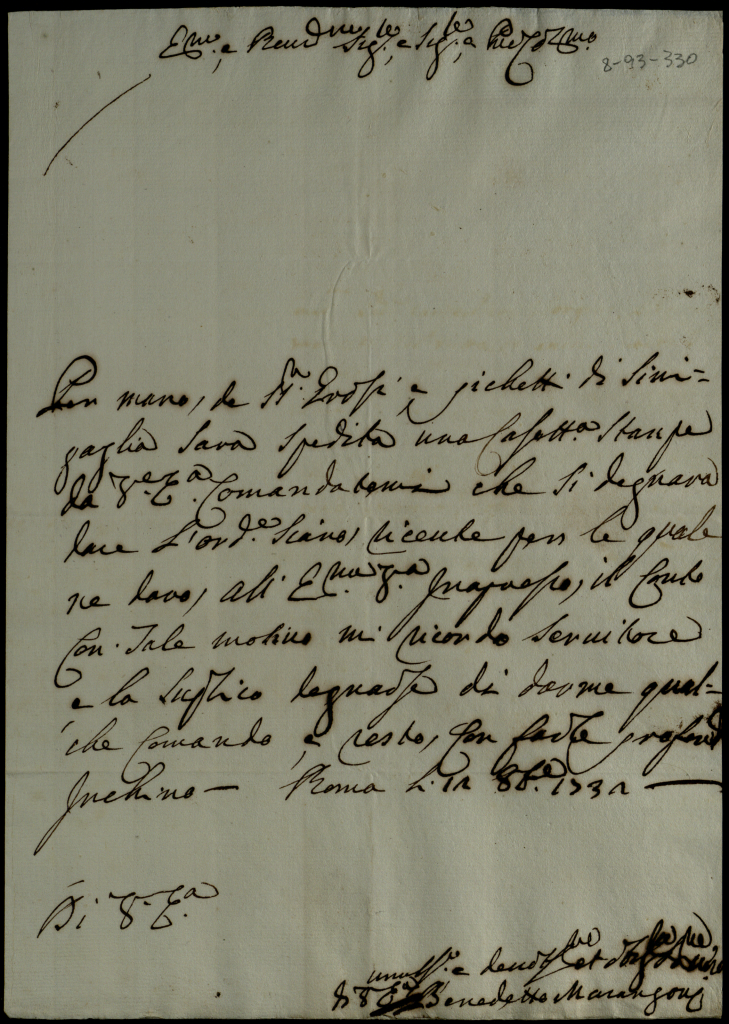 Em.º e Reud.mo Sig.re, e Sig.re, e
8-93-330
Per mano, de SS.ri e Gichetti di Sini=
gaglia Sara Spedita una Casetta Stanpe
da V.ra E.a Comandatemi che Si degnara
dare L'ord.e Siano, riceute per le quale
ne davo, all' Em.a V.a Inapresso, il Conto
Con Tale motivo mi ricordo Servitore
e la Suplico degnarse di darme qual=
che Comando e resto, Con farle profond
Inchino — Roma L. 8b.e 1731 —
Di V.ra E.a
umiliss.o e deuotiss.mo et
di V.ra E.a Benedetto Marangoni